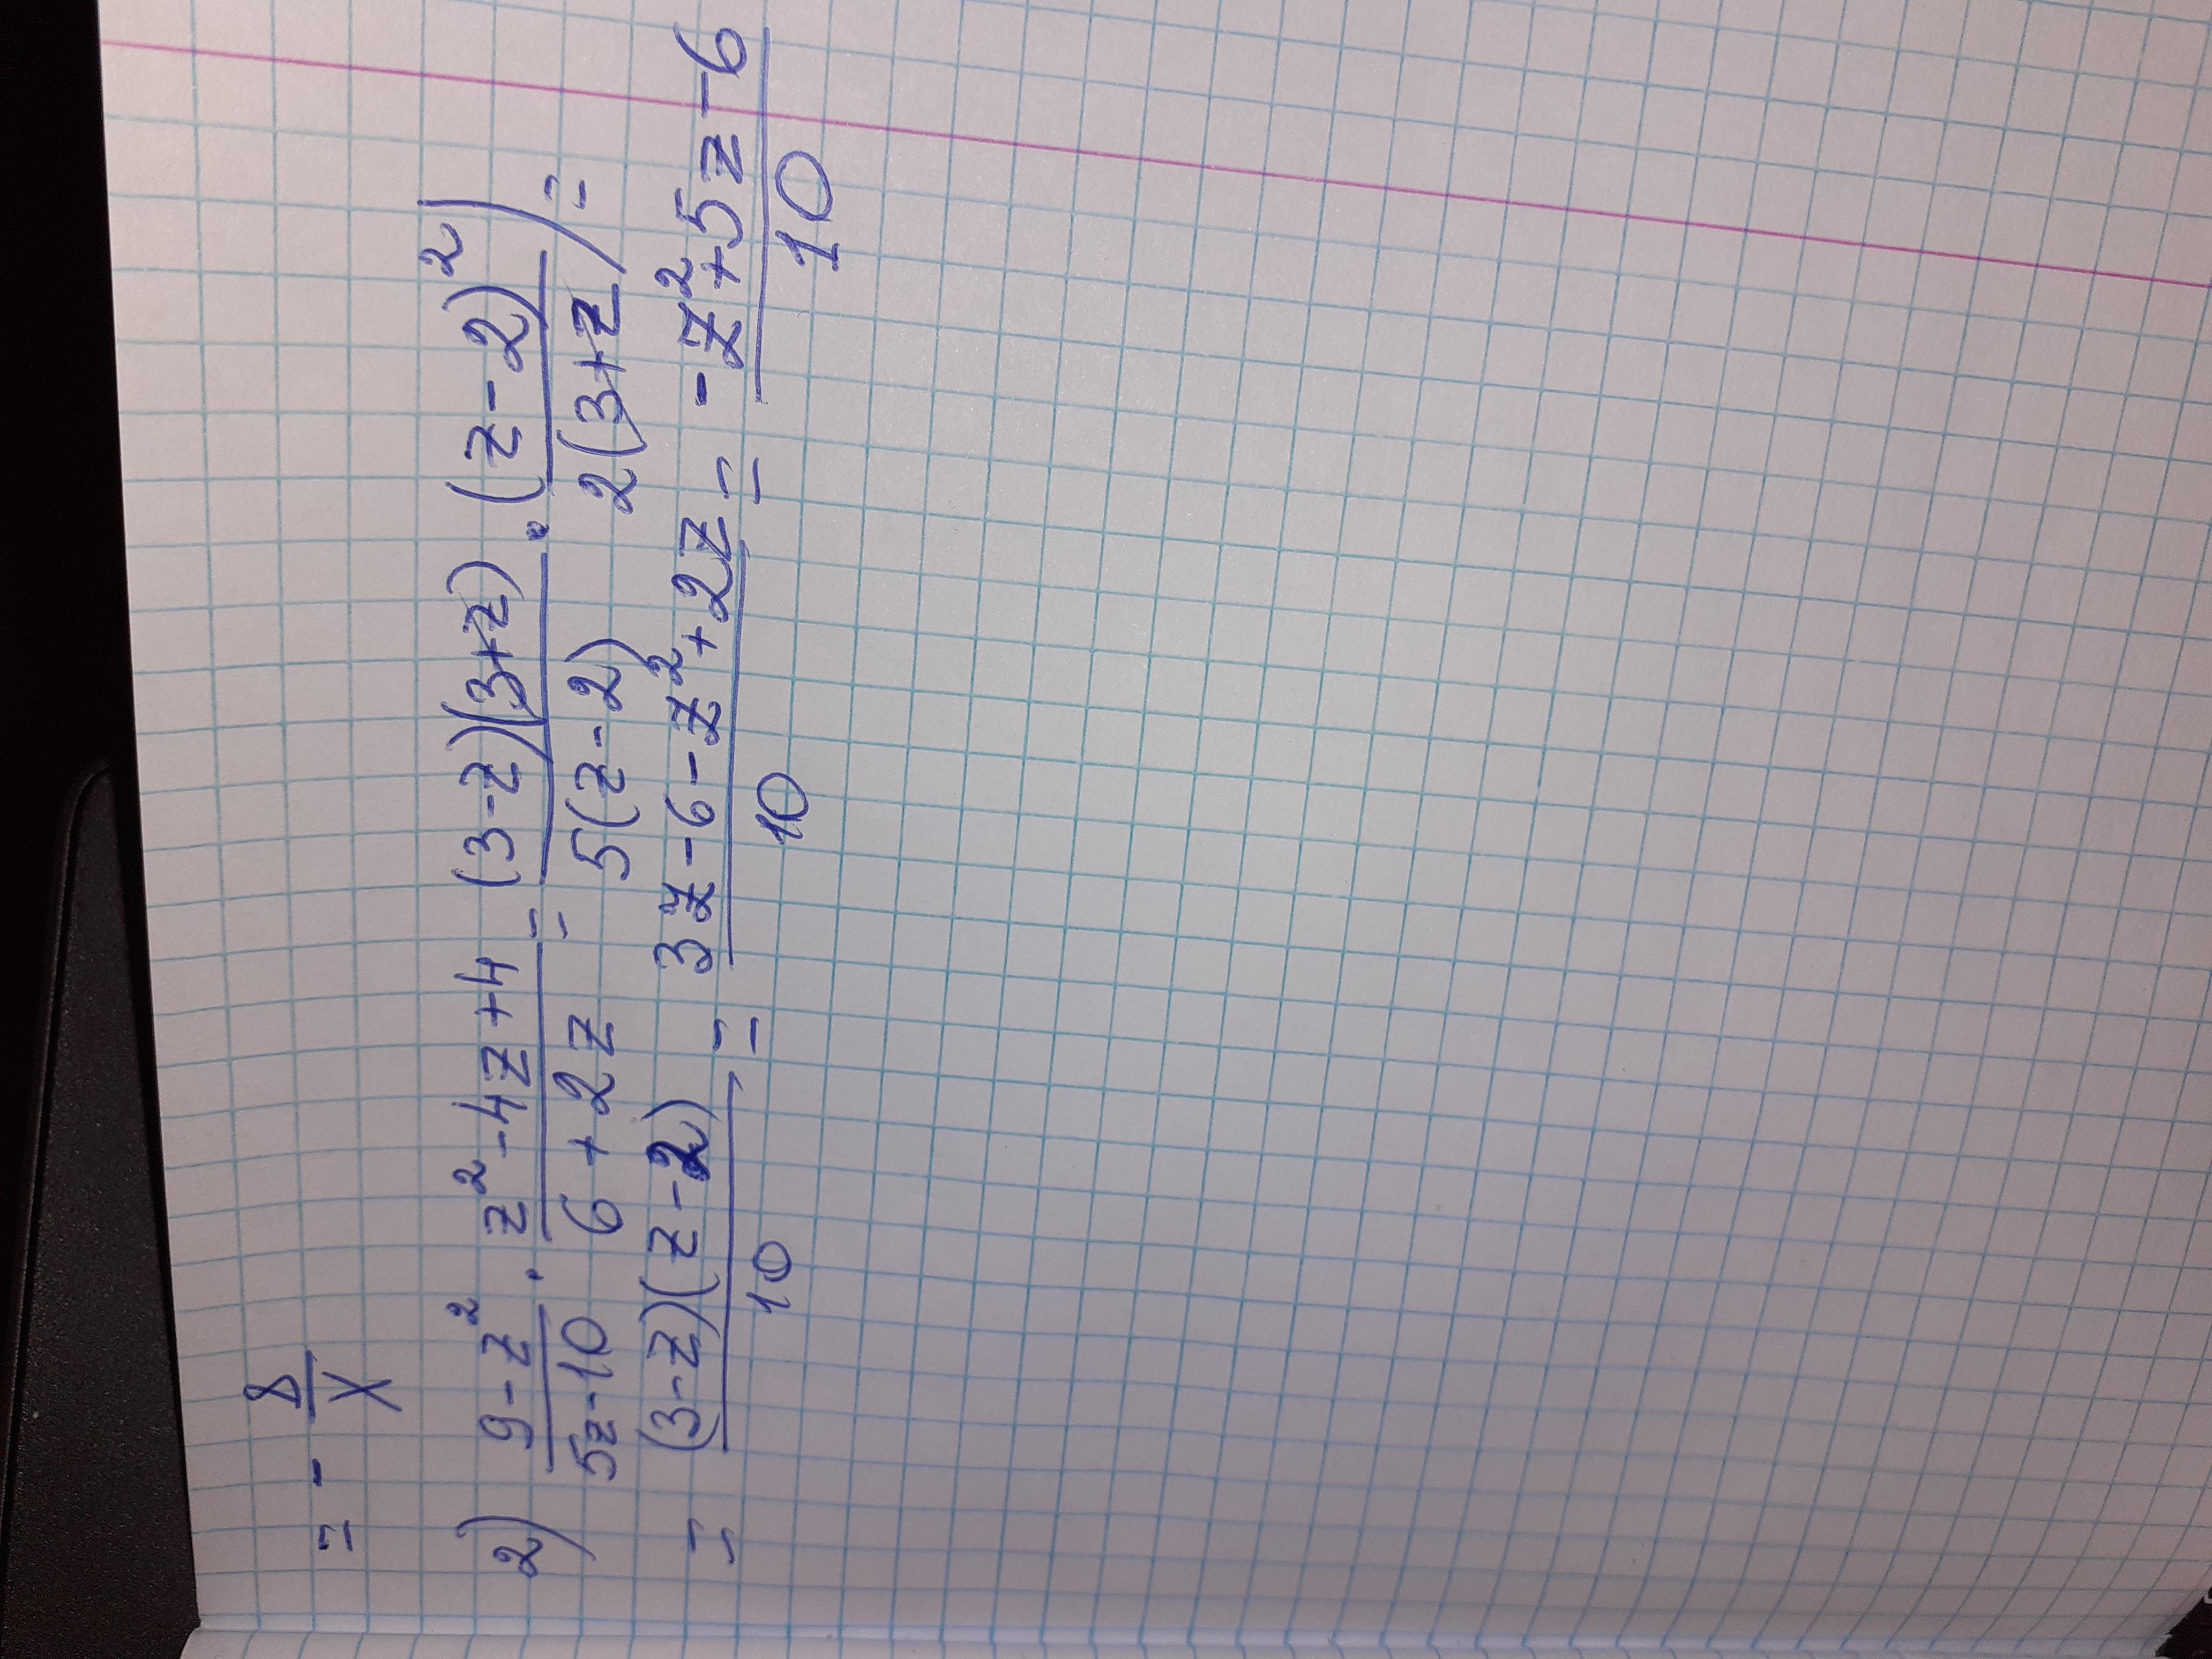 = - 8/x
2) (9-z²)/(5z-10) · (z²-4z+4)/(6+2z) = ((3-z)(3+z))/(5(z-2)) · (z-2)²/(2(3+z)) =
= ((3-z)(z-2))/10 = (3z-6-z²+2z)/10 = (-z²+5z-6)/10